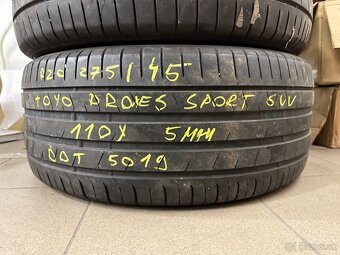 R20 275/45
TOYO PROXES SPORT SUV
110Y 5MM
DOT 5019